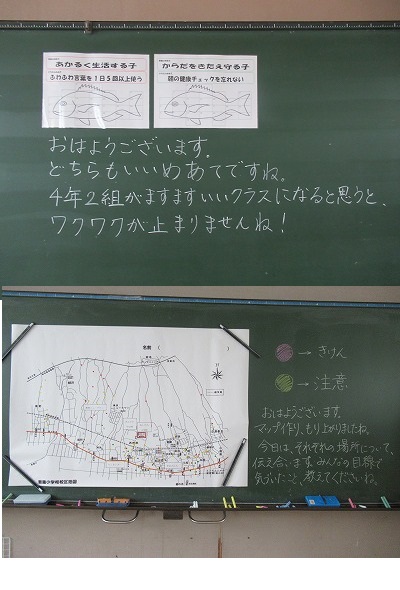 あかるく生活する子
ふわふわ言葉を1日5回以上使う
からだをきたえ守る子
朝の健康チェックを忘れない
おはようございます。
どちらもいいめあてですね。
4年2組がますますいいクラスになると思うと、
ワクワクが止まりませんね!
名前( )
→きけん
→注意
おはようございます。
マップ作り、もり上がりましたね。
今日は、それぞれの場所について、
伝え合います。みんなの目線で
気づいたこと、教えてくださいね。